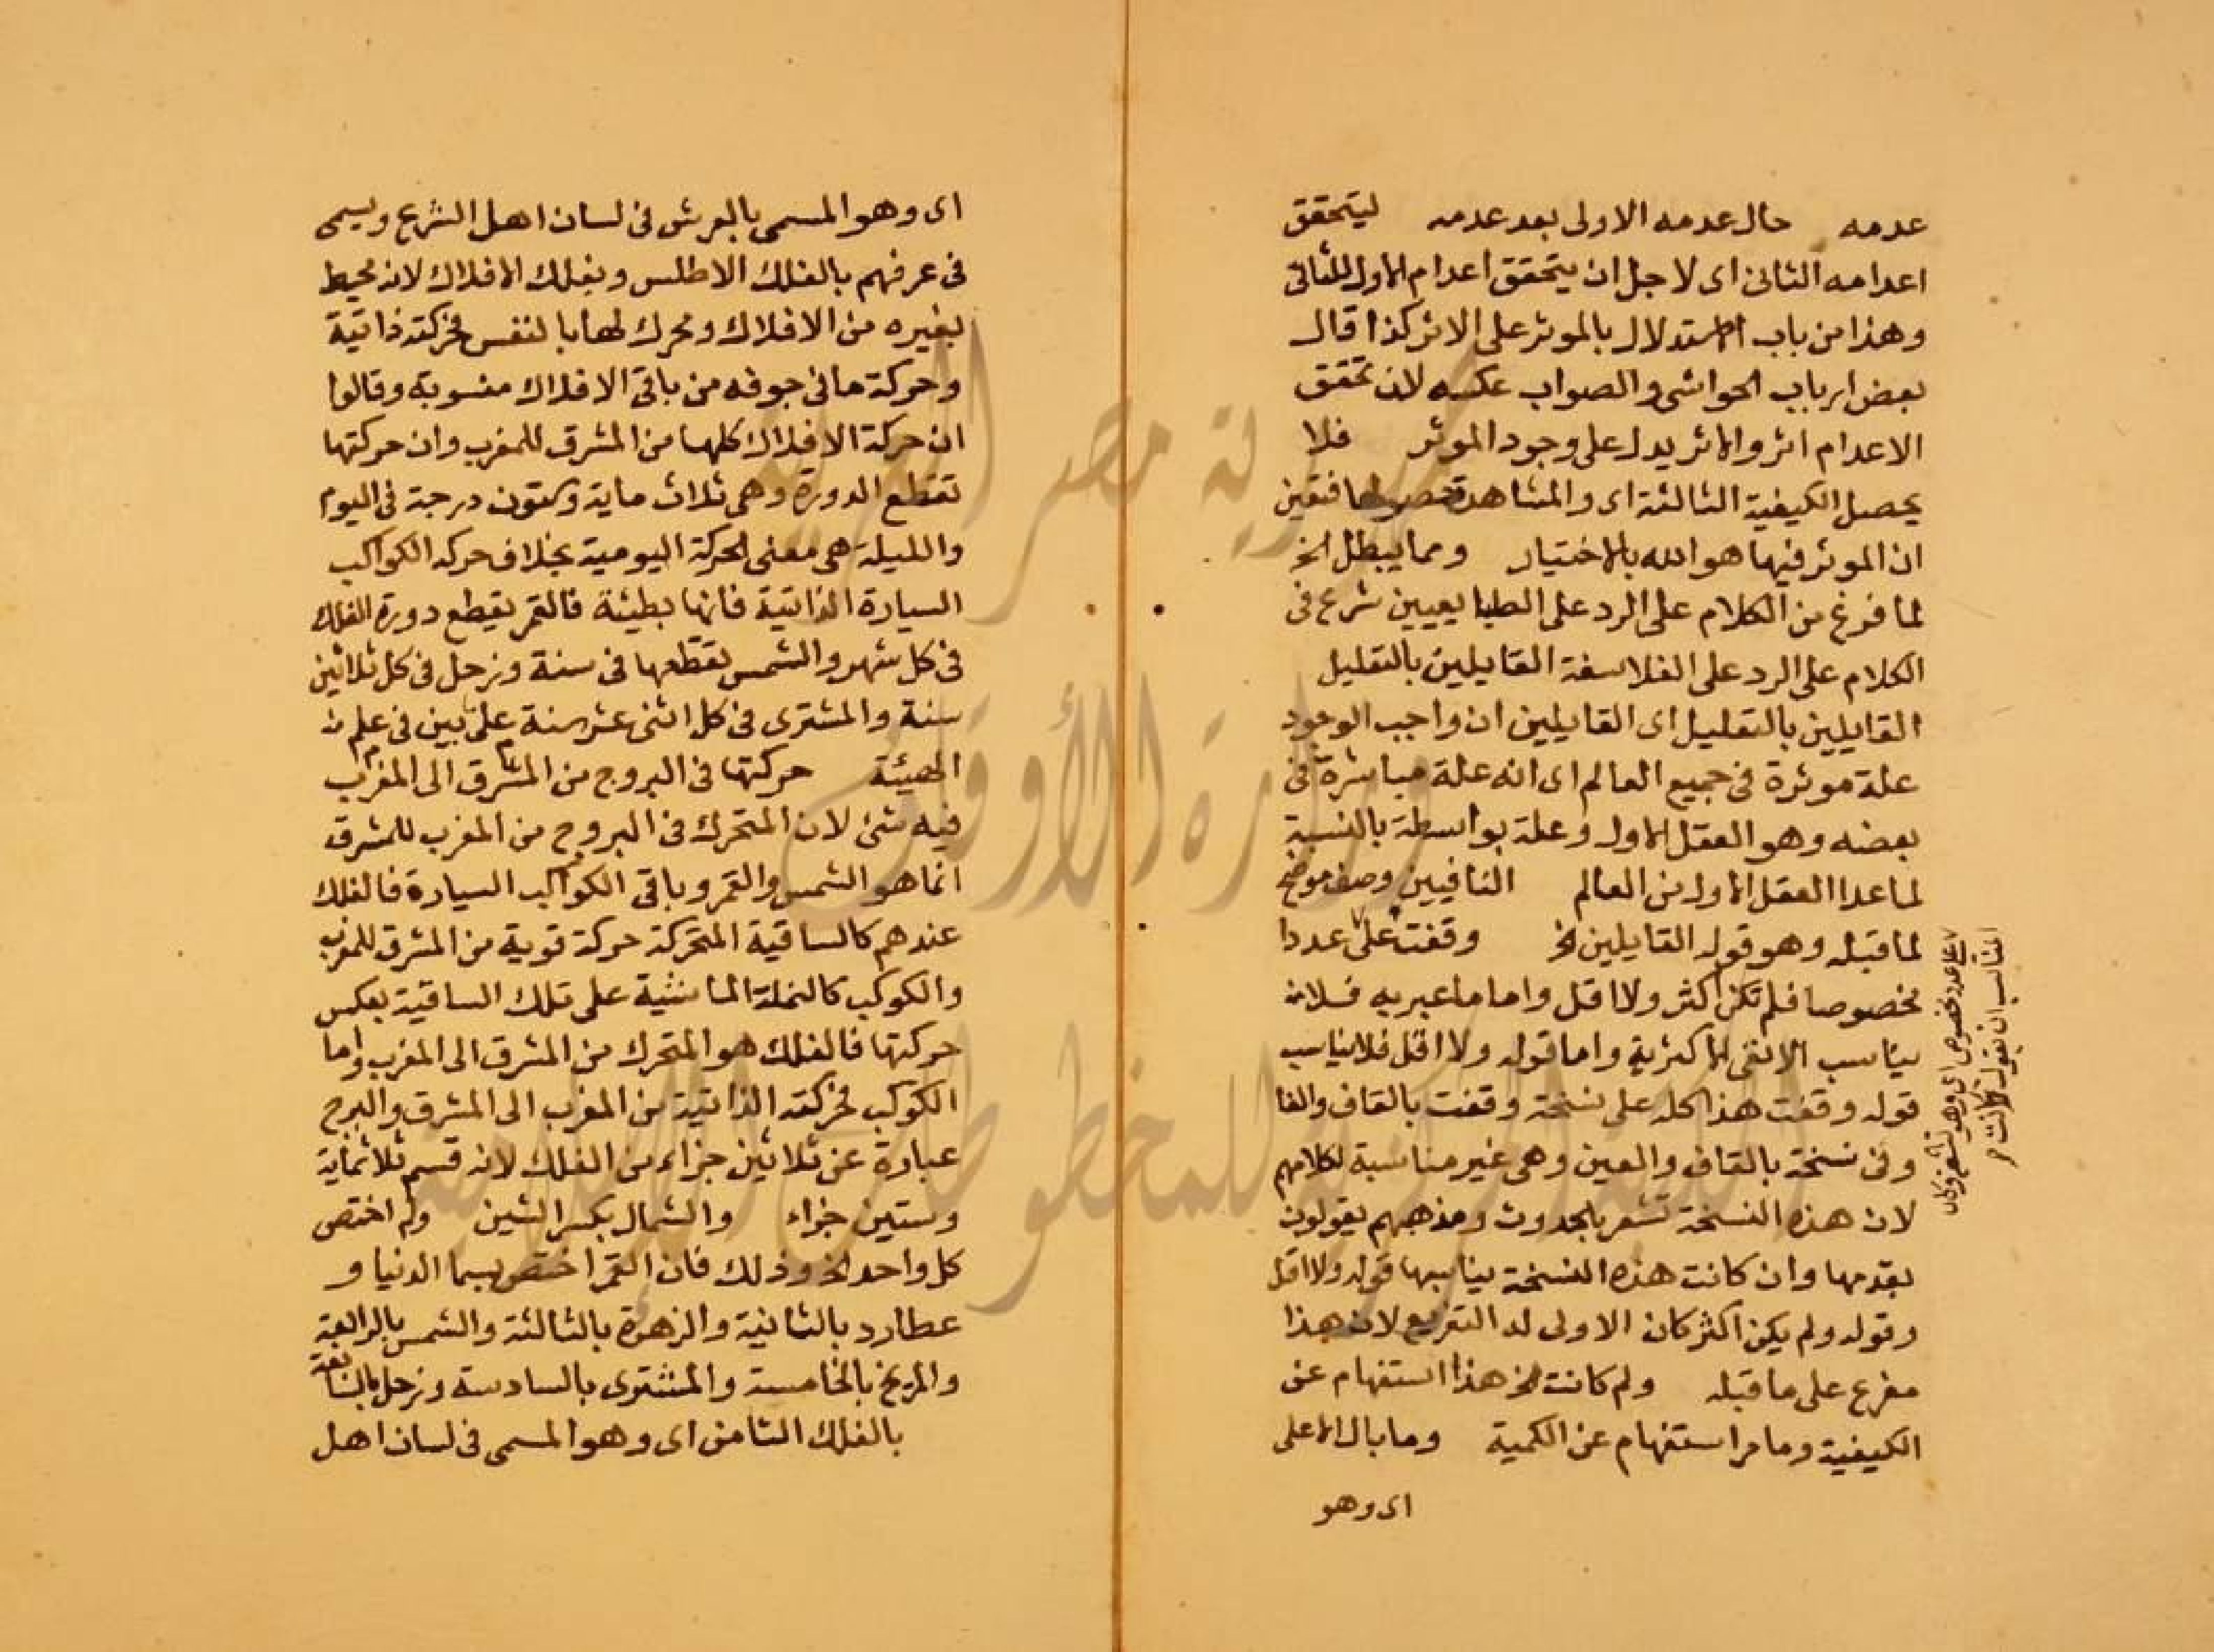 عدمه حال عدمه الاولى بعد عدمه ليتحقق
اعدامه الثانى اى لا جل ان يتحقق اعدام الاول للثانى
وهذا من باب الاستدلال بالموثر على الاثر كذا قال
بعض ارباب الحواشى والصواب عكسه لان تحقق
الاعدام اثر والاثر يدل على وجود الموثر فلا
يحصل الكيفية الثالثة اى والمشاهدة حصولها فتعين
ان الموثر فيها هو الله بالاختيار ومما يبطل الخ
لما فرغ من الكلام على الرد على الطبايعيين شرع فى
الكلام على الرد على الفلاسفة القايلين بالتعليل
القايلين بالتعليل اى القايلين ان واجب الوجود
علة موثرة فى جميع العالم اى انه علة مباشرة فى
بعضه وهو العقل الاول وعلة بواسطة بالنسبة
لما عدا العقل الاول من العالم النافيين وصف موضح
لما قبله وهو قوله القايلين الخ وقفت على عدد
مخصوصا فلم تكن اكثر ولا اقل واما ما عبر به فلانه
يناسب الانفى الاكثرية واما قوله ولا اقل فلا يناسب
قوله وقفت هذا كله على نسخة وقفت بالقاف والفا
وفى نسخة بالقاف والعين وهى غير مناسبة لكلامهم
لان هذه النسخة تشعر بالحدوث ومذهبهم يقولون
بقدمها وان كانت هذه النسخة يناسبها قوله ولا اقل
وقوله ولم يكن اكثر كان الاولى له التفريع لان هذا
مفرع على ما قبله ولم كانت الخ هذا استفهام عن
الكيفية وما مر استفهام عن الكمية وما بال الاعلى
اى وهو
المناسب ان يقول
على عدد مخصوص اى وهو تسع
اى وهو المسمى بالعرش فى لسان اهل الشرع ويسمى
فى عرفهم بالفلك الاطلس وبفلك الافلاك لانه محيط
بغيره من الافلاك ومحرك لها بالنفس فحركته ذاتية
وحركة ما فى جوفه من باقى الافلاك منسوبة وقالوا
ان حركة الافلاك كلها من المشرق للمغرب وان حركتها
تقطع الدورة وهى ثلاث ماية وستون درجة فى اليوم
والليلة هى معنى الحركة اليومية بخلاف حركه الكواكب
السيارة الذاتية فانها بطيئة فالقمر يقطع دورة الفلك
فى كل شهر والشمس تقطعها فى سنة وزحل فى كل ثلاثين
سنة والمشترى فى كل اثنى عشر سنة على ما بين فى علم
الهيئة حركتها فى البروج من المشرق الى المغرب
فيه شئ لان المتحرك فى البروج من المغرب للمشرق
انما هو الشمس والقمر وباقى الكواكب السيارة فالفلك
عندهم كالساقية المتحركة حركة قوية من المشرق للمغرب
والكوكب كالنملة الماشية على تلك الساقية بعكس
حركتها فالفلك هو المتحرك من المشرق الى المغرب واما
الكوكب فحركته الذاتية من المغرب الى المشرق والبرج
عبارة عن ثلاثين جزاء من الفلك لانه قسم ثلاثماية
وستين جزاء والشمال بكسر الشين ولم اختص
كل واحد الخ وذلك فان القمر اختص بسما الدنيا و
عطارد بالثانية والزهرة بالثالثة والشمس بالرابعة
والمريخ بالخامسة والمشترى بالسادسة وزحل بالسابعة
بالفلك الثامن اى وهو المسمى فى لسان اهل
جمهورية مصر العربية
وزارة الأوقاف
المكتبة المركزية للمخطوطات الإسلامية